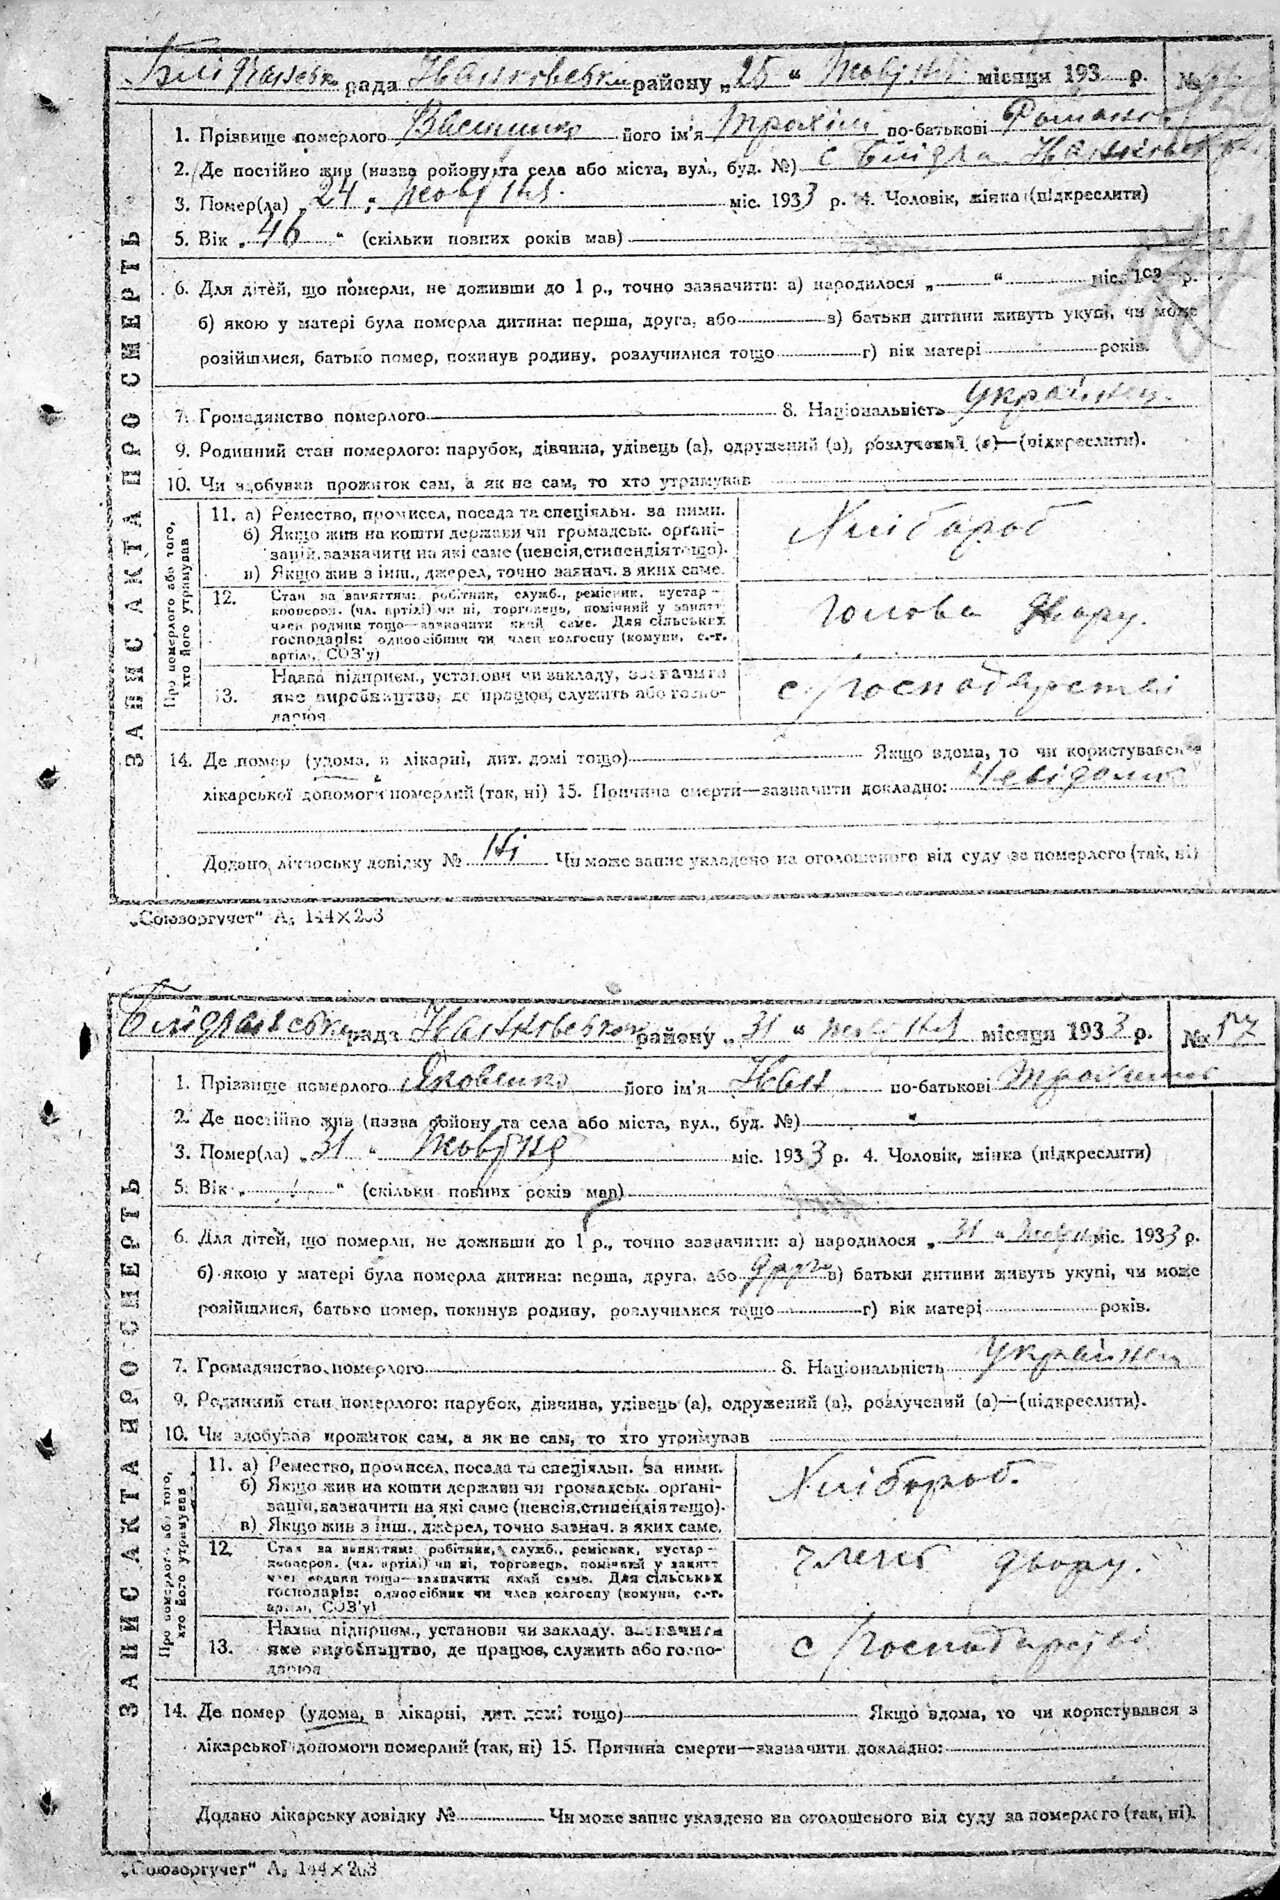 рада Іванковськ району „25 “ Жовтня місяця 193 р. №
1. Прізвище померлого його ім'я Трохим по-батькові Романов
2. Де постійно жив (назва району та села або міста, вул., буд. №)
3. Помер(ла) „24 “ жовтня міс. 1933 р. 4. Чоловік, жінка (підкреслити)
5. Вік „46 “ (скільки повних років мав)
6. Для дітей, що померли, не доживши до 1 р., точно зазначити: а) народилося „ “ міс. 193 р.
б) якою у матері була померла дитина: перша, друга, або в) батьки дитини живуть укупі, чи може
розійшлися, батько помер, покинув родину, розлучилися тощо г) вік матері років.
7. Громадянство померлого 8. Національність Українец.
9. Родинний стан померлого: парубок, дівчина, удівець (а), одружений (а), розлучений (а)—(підкреслити).
10. Чи здобував прожиток сам, а як не сам, то хто утримував
ЗАПИС АКТА ПРО СМЕРТЬ
Про померлого або того,
хто його утримував
11. а) Ремество, промисел, посада та спеціяльн. за ними.
б) Якщо жив на кошти держави чи громадськ. органі-
зацій, зазначити на які саме (пенсія, стипендія тощо).
в) Якщо жив з інш., джерел, точно зазнач. з яких саме.
Хлібороб
12. Стан за заняттям: робітник, служб., ремісник, кустар-
кооперов. (чл. артілі) чи ні, торговець, помічний у занятт
член родини тощо—зазначити який саме. Для сільських
господарів: одноосібник чи член колгоспу (комуни, с.-г.
артіль, СОЗ'у)
Голова двору.
13. Назва підприєм., установи чи закладу, зазначити
яке виробництво, де працює, служить або госпо-
дарює
с/господарстві
14. Де помер (удома, в лікарні, дит. домі тощо) Якщо вдома, то чи користувався з
лікарської допомоги померлий (так, ні) 15. Причина смерти—зазначити докладно: Невідома
Додано лікарську довідку № Ні Чи може запис укладено на оголошеного від суду за померлого (так, ні)
„Союзоргучет“ А₅ 144×203
рада Іванковськ району „31 “ жовтня місяця 1933 р. № 57
1. Прізвище померлого Яковенко його ім'я Іван по-батькові
2. Де постійно жив (назва району та села або міста, вул., буд. №) "
3. Помер(ла) „31 “ Жовтня міс. 1933 р. 4. Чоловік, жінка (підкреслити)
5. Вік „ “ (скільки повних років мав)
6. Для дітей, що померли, не доживши до 1 р., точно зазначити: а) народилося „31 “ жовтня міс. 1933 р.
б) якою у матері була померла дитина: перша, друга, або друга в) батьки дитини живуть укупі, чи може
розійшлися, батько помер, покинув родину, розлучилися тощо г) вік матері років.
7. Громадянство померлого 8. Національність Українец
9. Родинний стан померлого: парубок, дівчина, удівець (а), одружений (а), розлучений (а)—(підкреслити).
10. Чи здобував прожиток сам, а як не сам, то хто утримував
ЗАПИС АКТА ПРО СМЕРТЬ
Про померлого або того,
хто його утримував
11. а) Ремество, промисел, посада та спеціяльн. за ними.
б) Якщо жив на кошти держави чи громадськ. органі-
зацій, зазначити на які саме (пенсія, стипендія тощо).
в) Якщо жив з інш., джерел, точно зазнач. з яких саме.
Хлібороб.
12. Стан за заняттям: робітник, служб., ремісник, кустар-
кооперов. (чл. артілі) чи ні, торговець, помічний у занятт
член родини тощо—зазначити який саме. Для сільських
господарів: одноосібник чи член колгоспу (комуни, с.-г.
артіль, СОЗ'у)
член двору.
13. Назва підприєм., установи чи закладу, зазначити
яке виробництво, де працює, служить або госпо-
дарює
с/господарстві
14. Де помер (удома, в лікарні, дит. домі тощо) Якщо вдома, то чи користувався з
лікарської допомоги померлий (так, ні) 15. Причина смерти—зазначити докладно:
Додано лікарську довідку № Чи може запис укладено на оголошеного від суду за померлого (так, ні).
„Союзоргучет“ А₅ 144×203